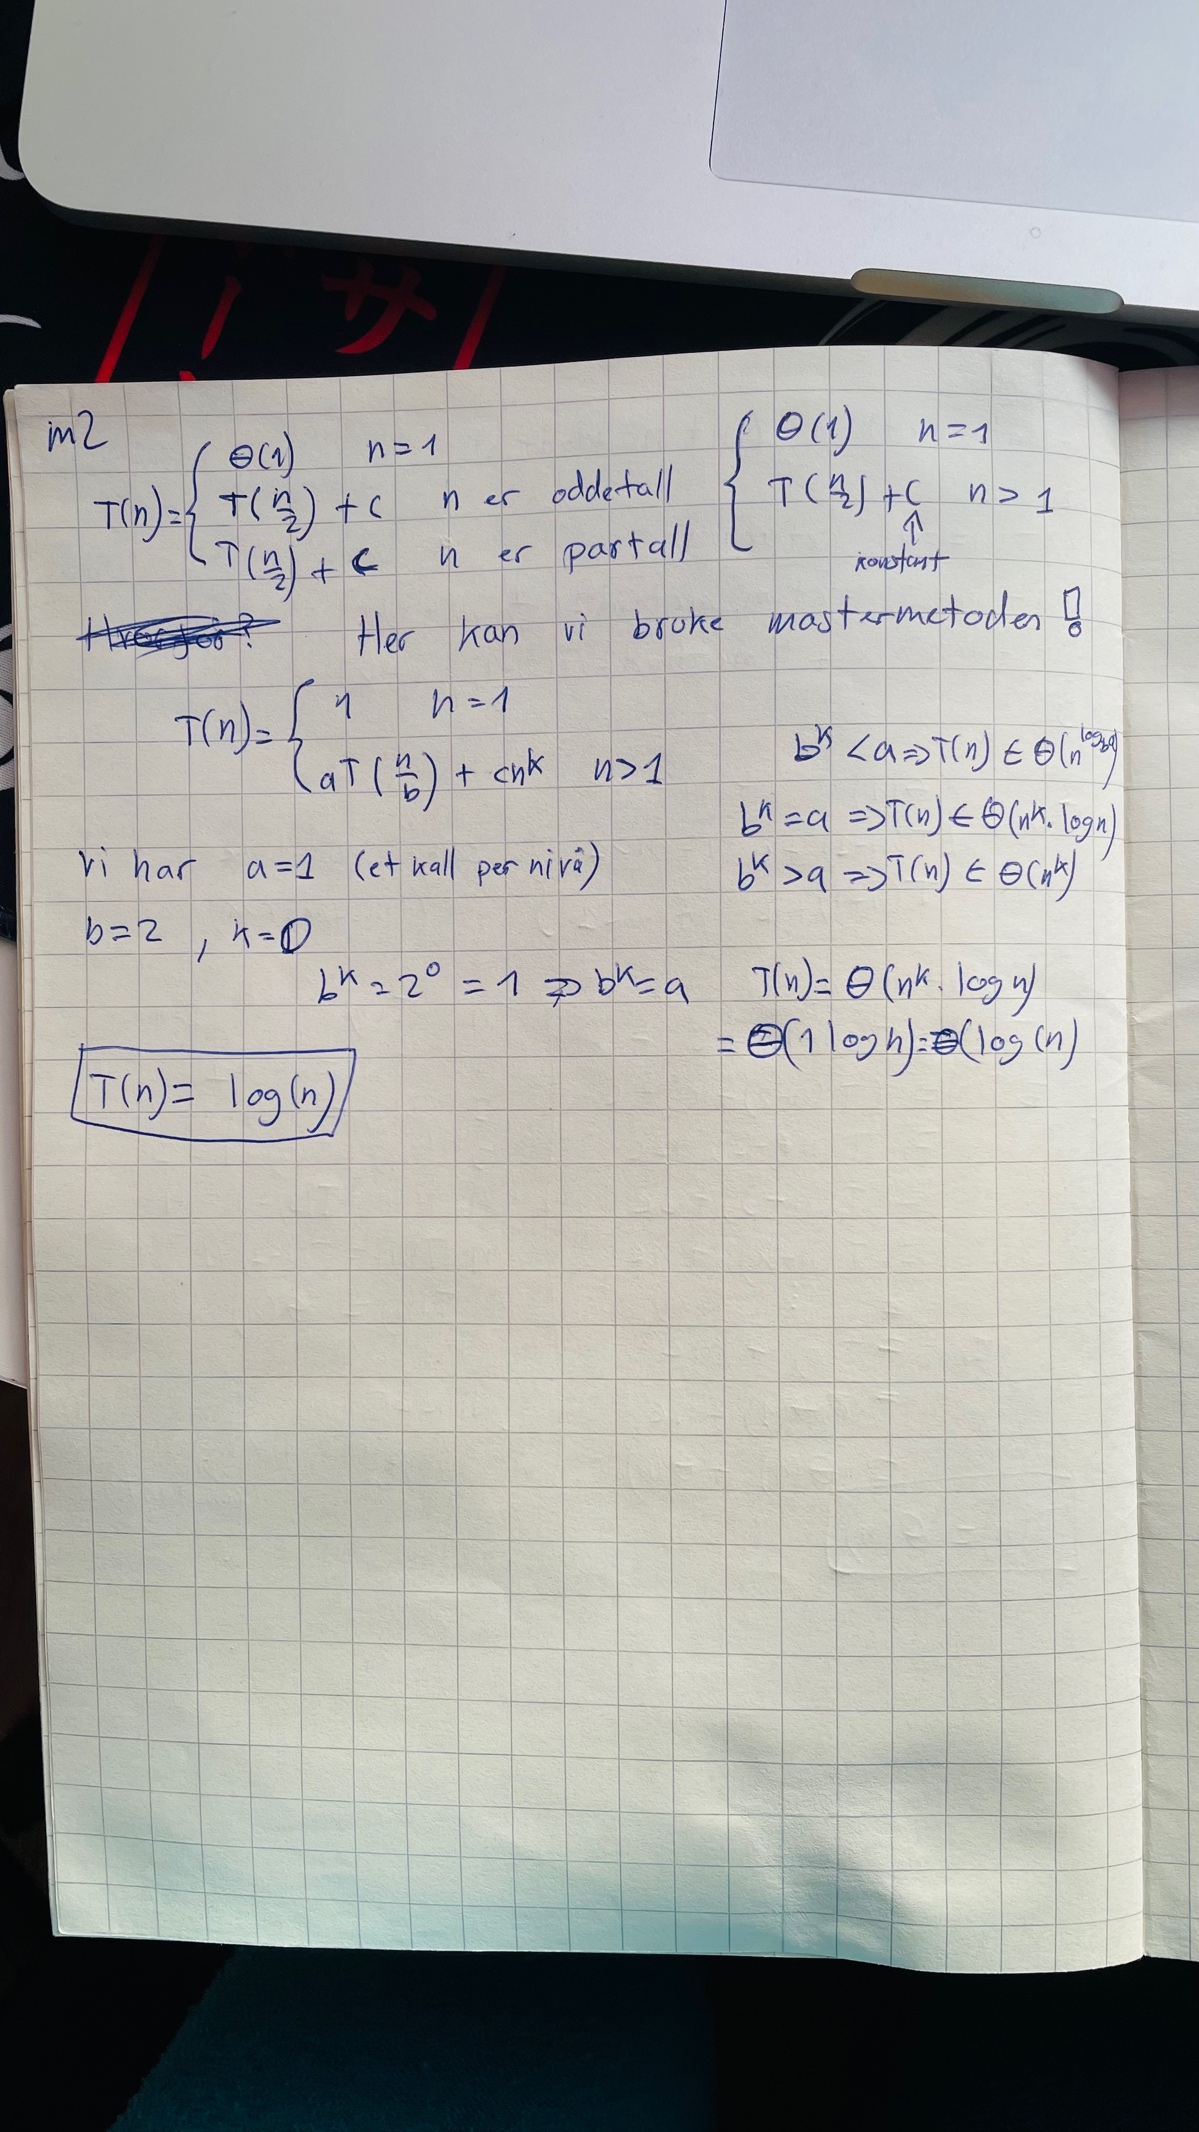 サ
m2
T(n)= { Θ(1) n=1
T(n/2) + c n er oddetall
T(n/2) + c n er partall
{ Θ(1) n=1
T(n/2) + c n > 1
↑
konstant
Hvorfor? Her kan vi bruke mastermetoden !
T(n)= { 1 n=1
aT(n/b) + cn^k n>1
b^k < a => T(n) ∈ Θ(n^log_b a)
b^k = a => T(n) ∈ Θ(n^k · log n)
b^k > a => T(n) ∈ Θ(n^k)
vi har a=1 (et kall per nivå)
b=2 , k=0
b^k = 2^0 = 1 => b^k = a T(n) = Θ(n^k · log n)
= Θ(1 log n) = Θ(log(n)
T(n) = log(n)